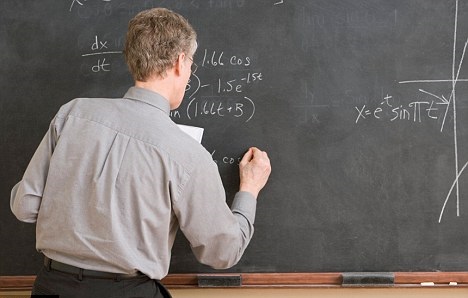 dx
dt
1.66 cos
) - 1.5e^-15t
in (1.66t+B)
6 co
x=e^-t sin πt